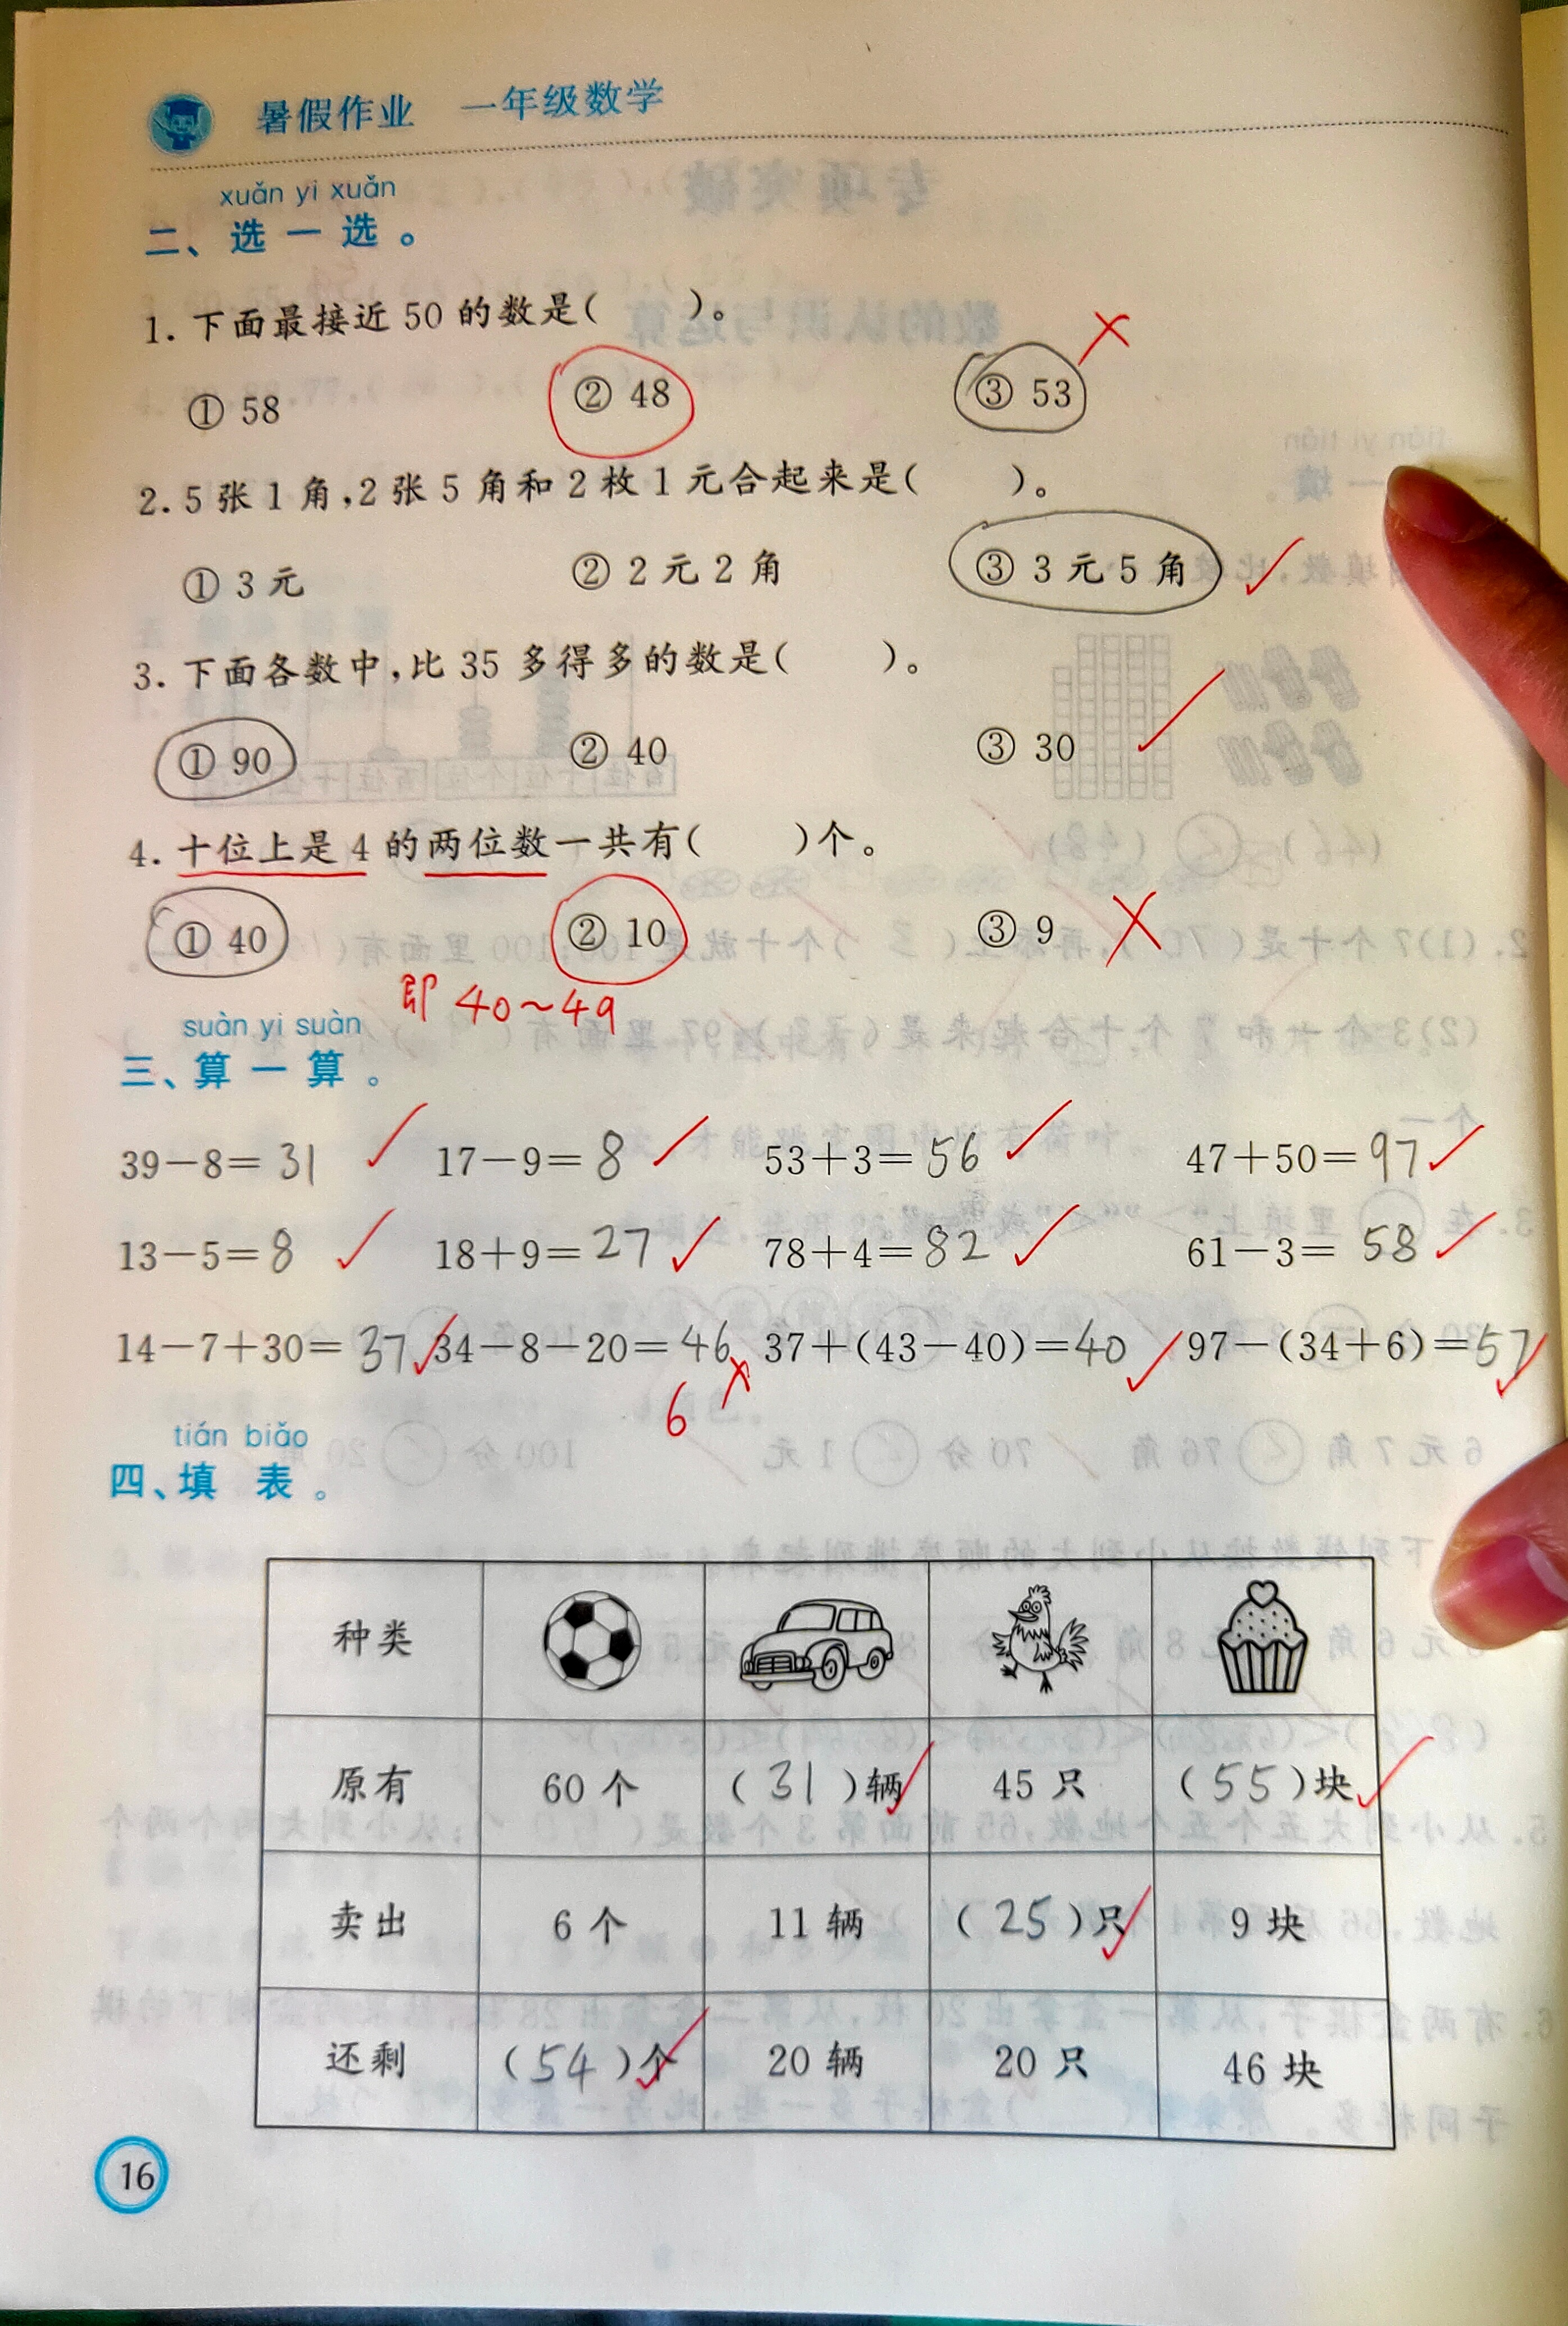 暑假作业 一年级数学
xuǎn yi xuǎn
二、选一选。
1. 下面最接近50的数是(    )。
① 58 ② 48 ③ 53
2. 5张1角,2张5角和2枚1元合起来是(    )。
① 3元 ② 2元2角 ③ 3元5角
3. 下面各数中,比35多得多的数是(    )。
① 90 ② 40 ③ 30
4. 十位上是4的两位数一共有(    )个。
① 40 ② 10 ③ 9
即 40~49
suàn yi suàn
三、算一算。
39-8=31 17-9=8 53+3=56 47+50=97
13-5=8 18+9=27 78+4=82 61-3=58
14-7+30=37 34-8-20=46 37+(43-40)=40 97-(34+6)=57
6
tián biǎo
四、填 表。
种类
原有 60个 (31)辆 45只 (55)块
卖出 6个 11辆 (25)只 9块
还剩 (54)个 20辆 20只 46块
16